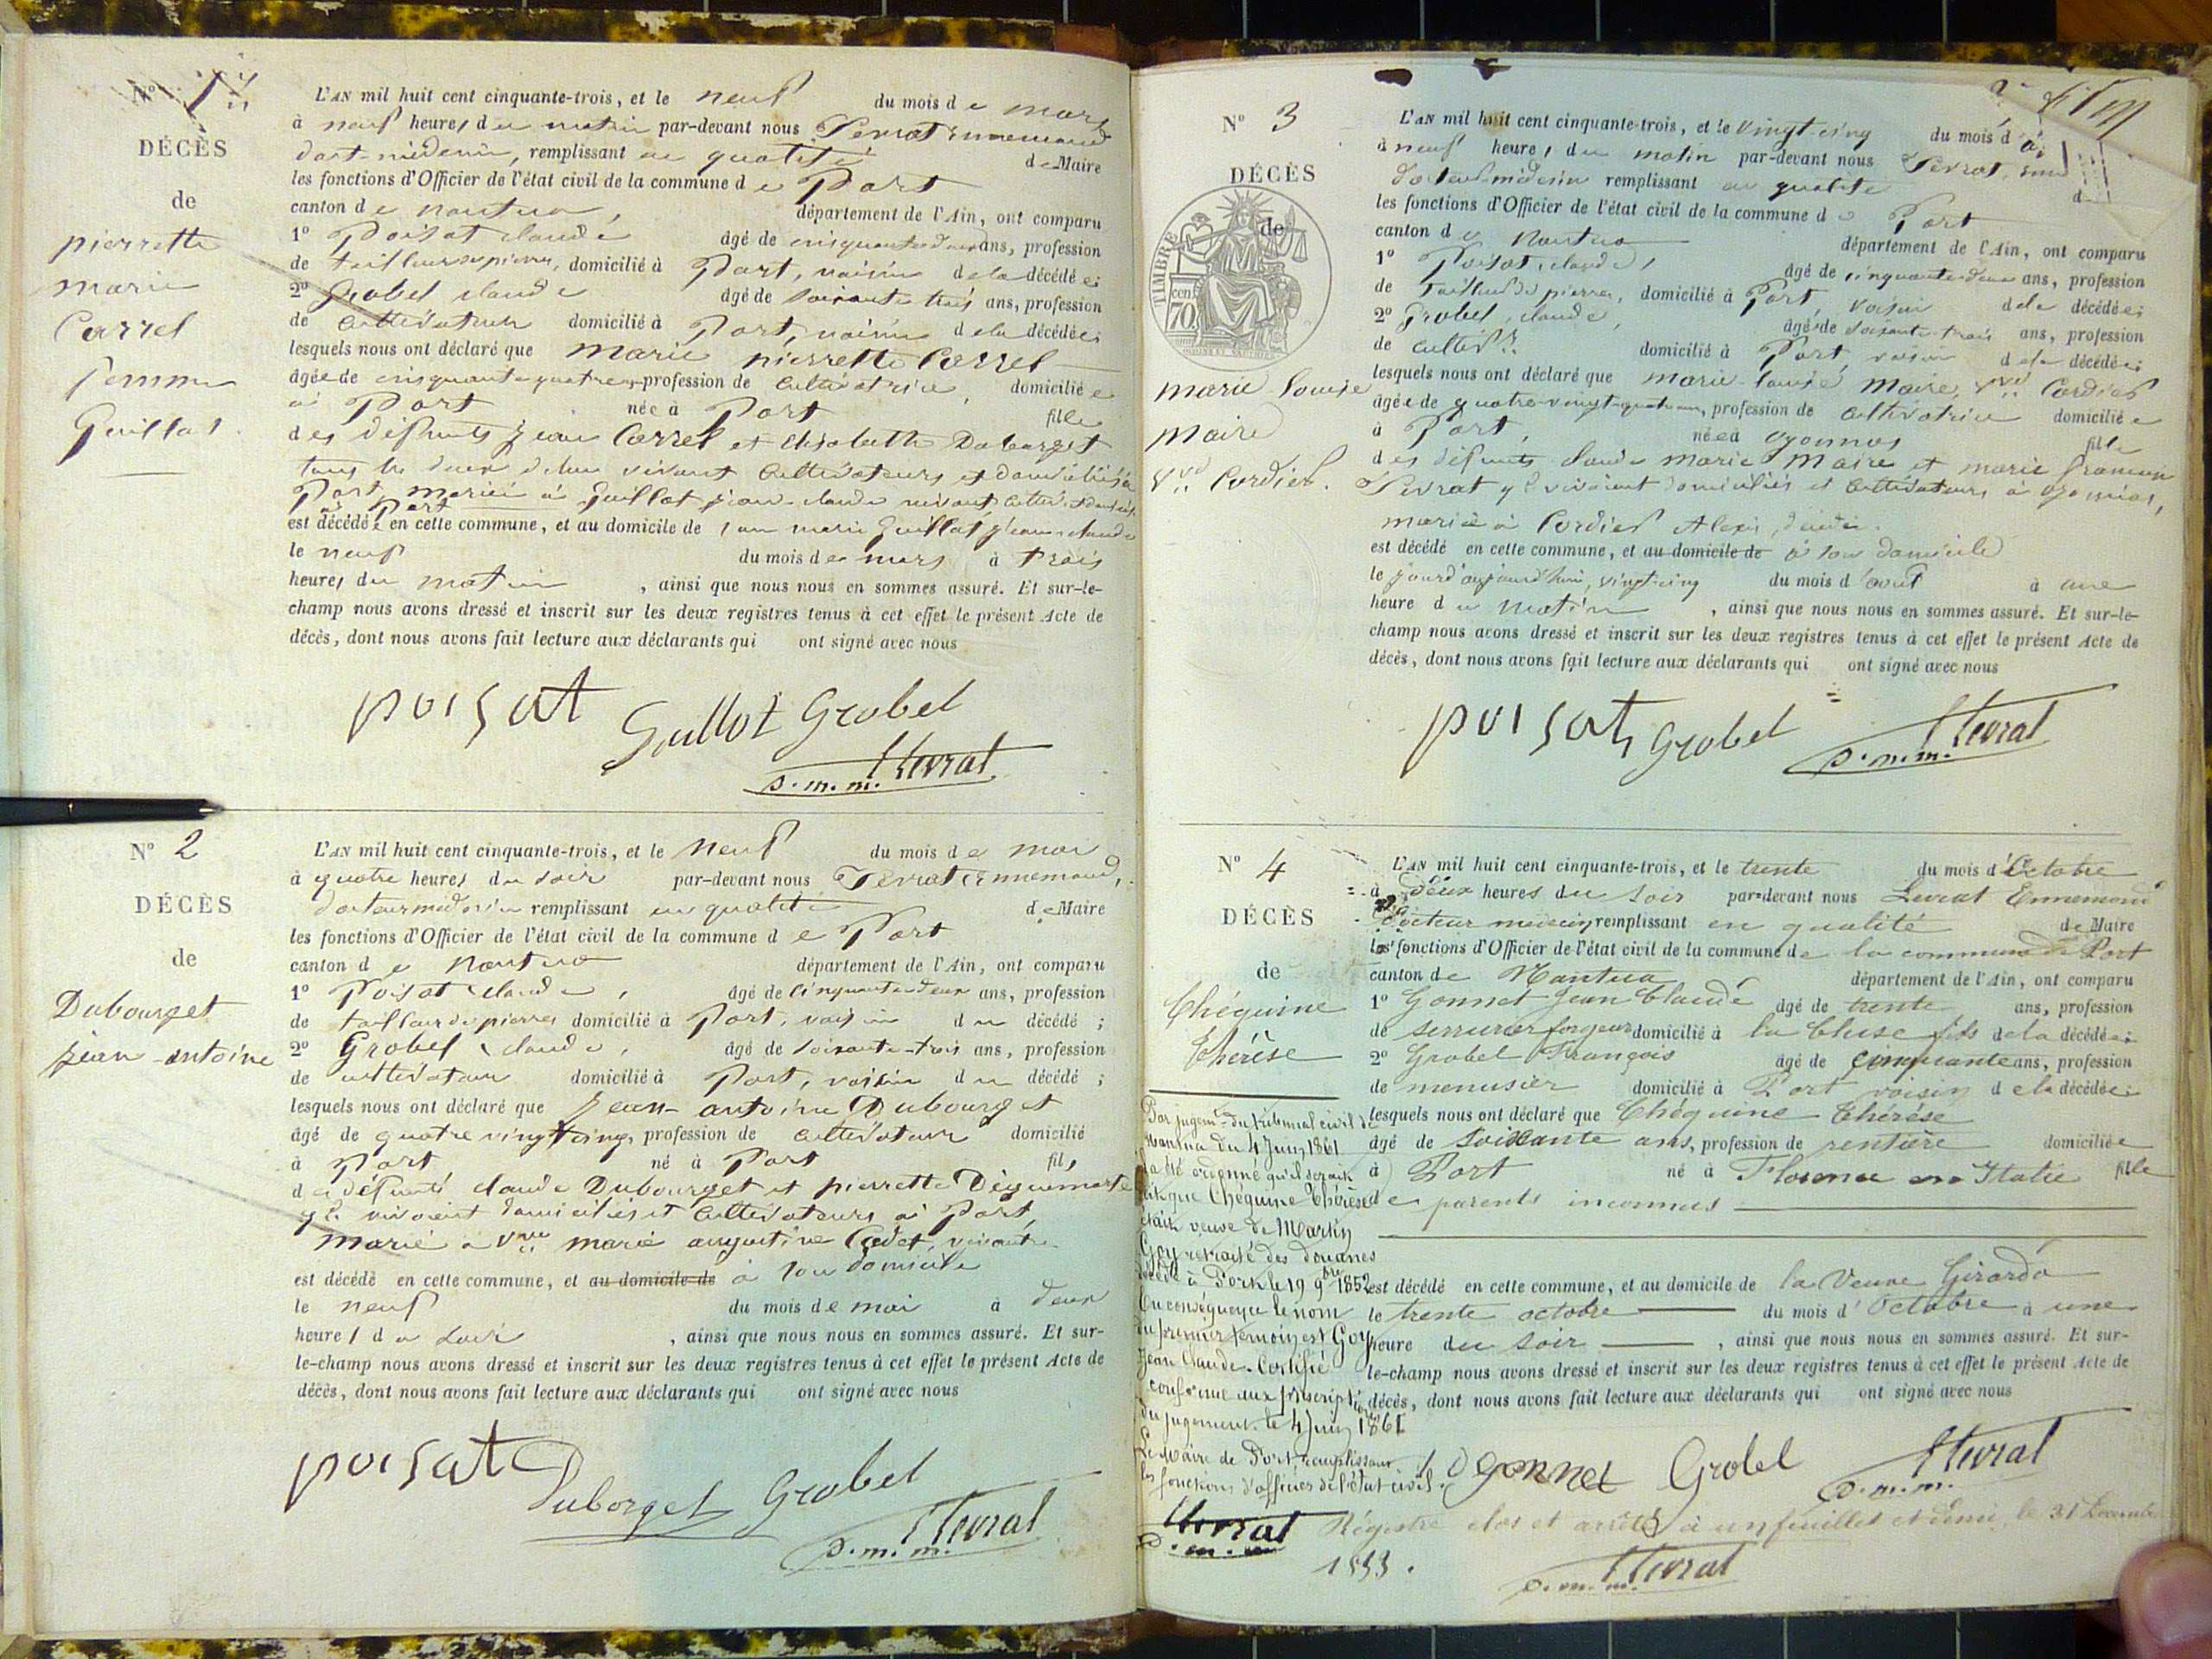 N° 1
DÉCÈS
de
pierrette
marie
Carrel
femme
Guillot.
L'AN mil huit cent cinquante-trois, et le neuf du mois de mars
à neuf heures du matin par-devant nous
remplissant en qualité de Maire
les fonctions d'Officier de l'état civil de la commune de Port
canton de nantua, département de l'Ain, ont comparu
1° Poisat claude âgé de cinquante deux ans, profession
de tailleur de pierres, domicilié à Port, voisin de la décédée;
2° Grobel claude âgé de soixante trois ans, profession
de cultivateur domicilié à Port, voisin de la décédée;
lesquels nous ont déclaré que marie pierrette Carrel
âgée de cinquante quatre, profession de cultivatrice, domiciliée
à Port née à Port fille
des défunts jean Carrel et elisabeth Dubourget
tous les deux de leur vivant cultivateurs et domiciliés à
Port, mariée à Guillot jean-claude vivant
à Port
est décédée en cette commune, et au domicile de son mari Guillot jean claude
le neuf du mois de mars à trois
heures du matin, ainsi que nous nous en sommes assuré. Et sur-le-
champ nous avons dressé et inscrit sur les deux registres tenus à cet effet le présent Acte de
décès, dont nous avons fait lecture aux déclarants qui ont signé avec nous
poisat Guillot Grobel
d.m.m.
N° 2
DÉCÈS
de
Dubourget
jean-antoine
L'AN mil huit cent cinquante-trois, et le neuf du mois de mai
à quatre heures du soir par-devant nous Levrat Ennemond,
docteur médecin remplissant en qualité de Maire
les fonctions d'Officier de l'état civil de la commune de Port
canton de nantua département de l'Ain, ont comparu
1° Poisat claude, âgé de cinquante deux ans, profession
de tailleur de pierres domicilié à Port, voisin du décédé;
2° Grobel claude, âgé de soixante-trois ans, profession
de cultivateur domicilié à Port, voisin du décédé;
lesquels nous ont déclaré que jean-antoine Dubourget
âgé de quatre vingt cinq, profession de cultivateur domicilié
à Port, né à Port fils
des défunts claude Dubourget et pierrette
qd vivoient domiciliés et cultivateurs à Port,
marié à marie augustine Cadet, vivante
est décédé en cette commune, et au domicile de à son domicile
le neuf du mois de mai à deux
heures du soir, ainsi que nous nous en sommes assuré. Et sur-
le-champ nous avons dressé et inscrit sur les deux registres tenus à cet effet le présent Acte de
décès, dont nous avons fait lecture aux déclarants qui ont signé avec nous
poisat Duborget Grobel
d.m.m. Levrat
N° 3
DÉCÈS
de
TIMBRE
cen
70
marie louise
maire
Vve Cordier.
L'AN mil huit cent cinquante-trois, et le vingt-cinq du mois d'
à neuf heures du matin par-devant nous Levrat
docteur-médecin remplissant en qualité
les fonctions d'Officier de l'état civil de la commune de Port
canton de nantua département de l'Ain, ont comparu
1° Poisat, claude, âgé de cinquante deux ans, profession
de tailleur de pierres, domicilié à Port, voisin de la décédée;
2° Grobel, claude, âgé de soixante-trois ans, profession
de cultivr domicilié à Port voisin de la décédée;
lesquels nous ont déclaré que marie-louise Maire, Vve Cordier
âgée de quatre-vingt-quatre ans, profession de cultivatrice domiciliée
à Port, née à oyonnax fille
des défunts claude marie Maire et marie françoise
Levrat qd vivaient domiciliés et cultivateurs à oyonnax,
mariée à Cordier Alexis, décédé.
est décédé en cette commune, et au domicile de à son domicile
le jourd'aujourd'hui, vingt cinq du mois d'août à une
heure du matin, ainsi que nous nous en sommes assuré. Et sur-le-
champ nous avons dressé et inscrit sur les deux registres tenus à cet effet le présent Acte de
décès, dont nous avons fait lecture aux déclarants qui ont signé avec nous
poisat Grobel Levrat
d.m.m.
N° 4
DÉCÈS
de
Chéguine
Thérèse
L'AN mil huit cent cinquante-trois, et le trente du mois d'Octobre
à deux heures du soir par-devant nous Levrat Ennemond
Docteur médecin remplissant en qualité de Maire
les fonctions d'Officier de l'état civil de la commune de la commune de Port
canton de Nantua département de l'Ain, ont comparu
1° Gonnet Jean Claude âgé de trente ans, profession
de serrurier forgeur domicilié à la Cluse fils de la décédée;
2° Grobel François âgé de cinquante ans, profession
de menusier domicilié à Port voisin de la décédée;
lesquels nous ont déclaré que Chéguine Thérèse
âgé de soixante ans, profession de rentière domiciliée
à Port né à Florence en Italie fille
de parents inconnus
est décédé en cette commune, et au domicile de la Veuve Girardo
le trente octobre du mois d'Octobre à une
heure du soir, ainsi que nous nous en sommes assuré. Et sur-
le-champ nous avons dressé et inscrit sur les deux registres tenus à cet effet le présent Acte de
décès, dont nous avons fait lecture aux déclarants qui ont signé avec nous
Par jugemt du tribunal civil de
nantua du 4 Juin 1861
a été ordonné qu'il serait
dit que Chéguine Thérèse
était veuve de Martin
Goy retraité des douanes
décédé à Port le 19 9bre 1852
En conséquence le nom
du premier témoin est Goy
Jean Claude. Certifié
conforme aux prescriptions
du jugement. le 4 Juin 1861
Le Maire de Port remplissant
les fonctions d'officier de l'état civil.
Levrat
d.m.m.
gonnet Grobel Levrat
d.m.m.
Régistre clos et arrêté à un feuillet et demi, le 31 Décembre
1853.
d.m.m. Levrat